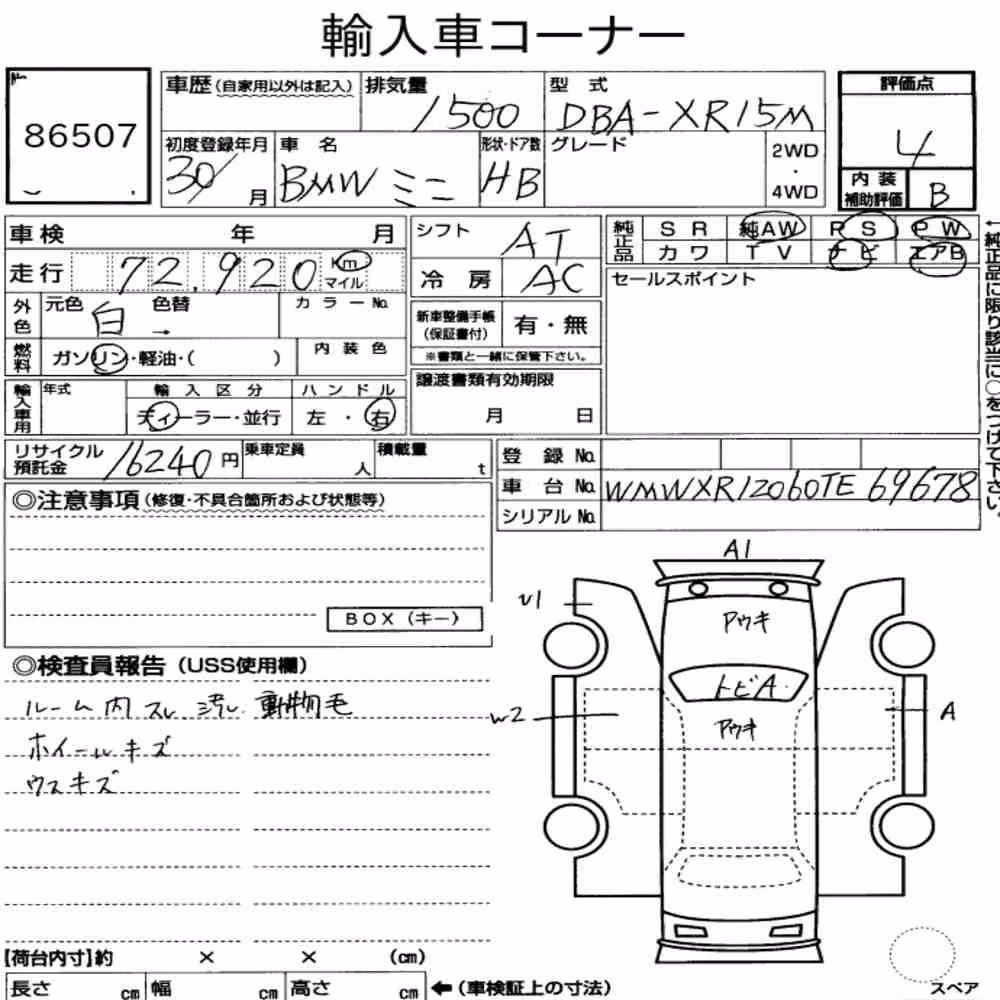 輸入車コーナー
86507
車歴(自家用以外は記入) 排気量 1500 型式 DBA-XR15M
評価点 4
初度登録年月 30/ 月 車名 BMW ミニ 形状・ドア数 HB グレード 2WD・4WD
内装補助評価 B
車検 年 月
走行 72,920 Km マイル
シフト AT
冷房 AC
純正品 SR 純AW PS PW
カワ TV ナビ エアB
←純正品に限り該当に○をつけて下さい。
外色 元色 白 色替 → カラーNo.
燃料 ガソリン・軽油・( ) 内装色
新車整備手帳(保証書付) 有・無
※書類と一緒に保管下さい。
セールスポイント
輸入車用 年式 輸入区分 ディーラー・並行 ハンドル 左・右
譲渡書類有効期限
月 日
リサイクル預託金 16240円 乗車定員 人 積載量 t
登録No.
車台No. WMWXR12060TE69678
シリアルNo.
◎注意事項(修復・不具合箇所および状態等)
BOX(キー)
◎検査員報告(USS使用欄)
ルーム内スレ 汚レ 動物毛
ホイールキズ
ウスキズ
A1
U1
アウキ
トビA
W2
アウキ
A
スペア
【荷台内寸】約 × × (cm)
長さ cm 幅 cm 高さ cm ←(車検証上の寸法)